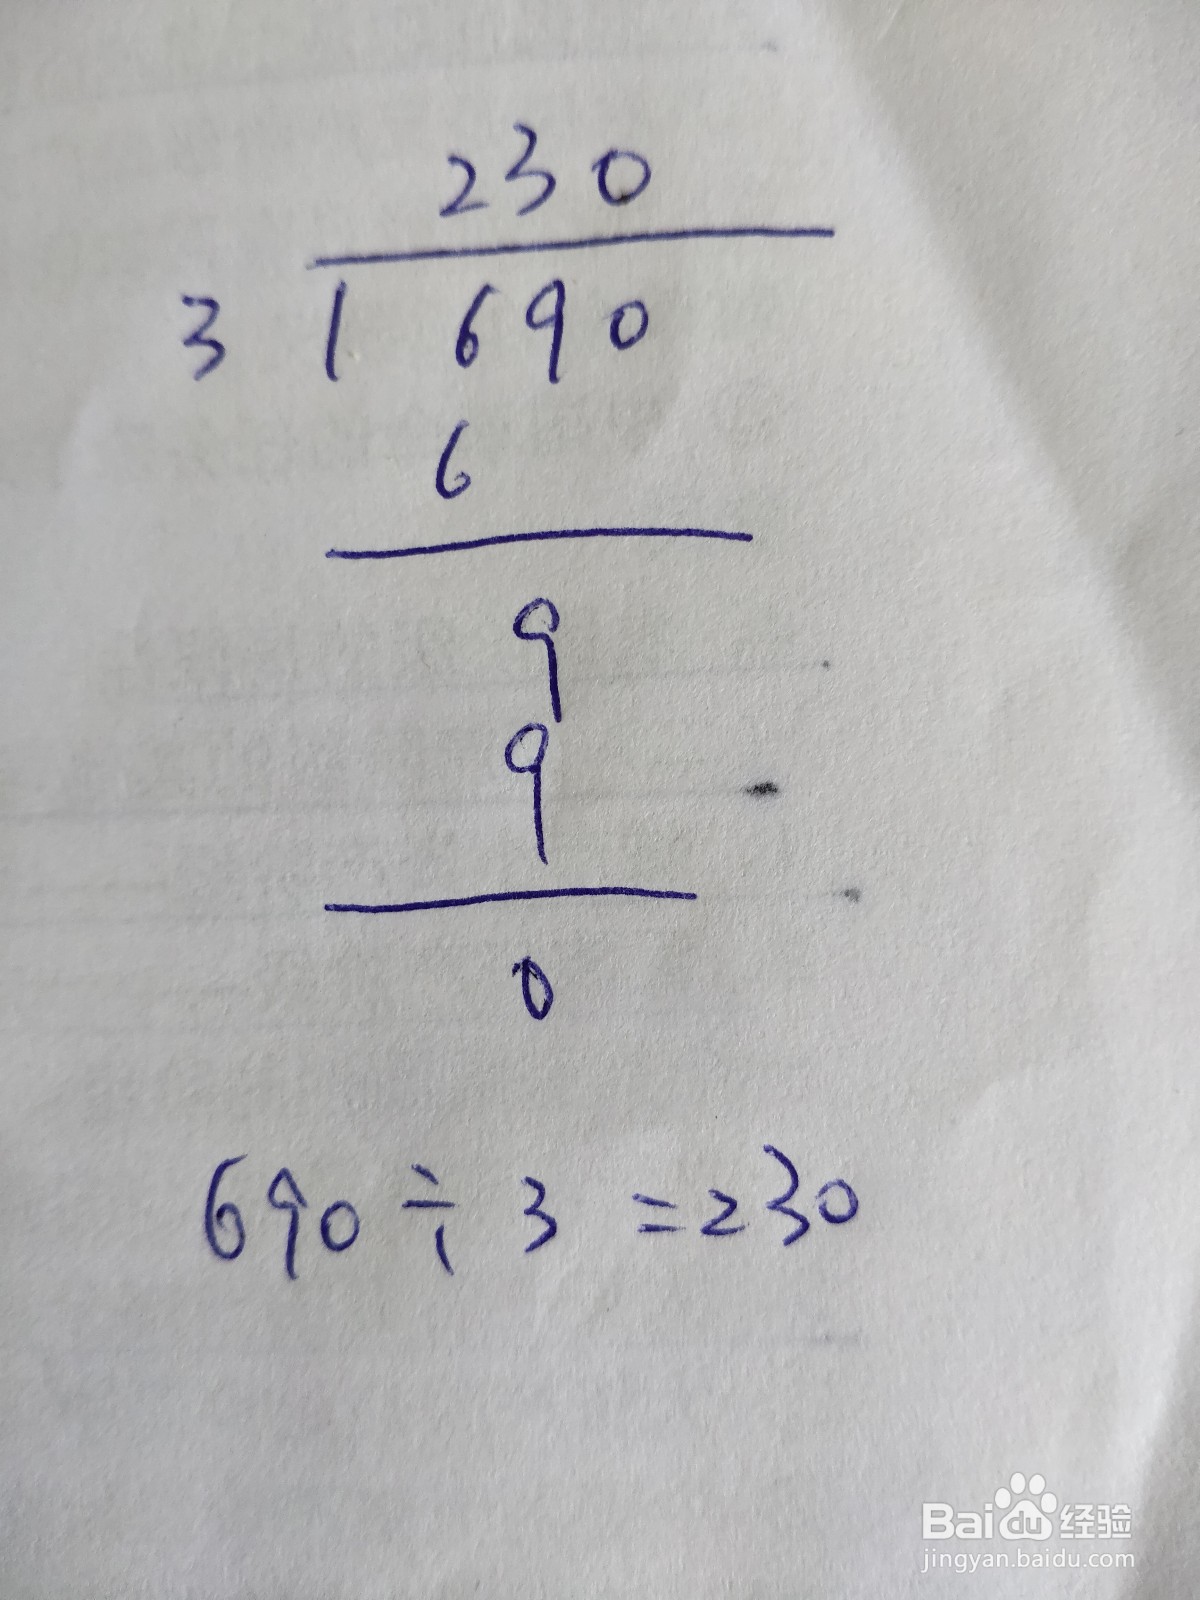 230
3 1 690
6
9
9
0
690÷3=230
Baidu 经验
jingyan.baidu.com